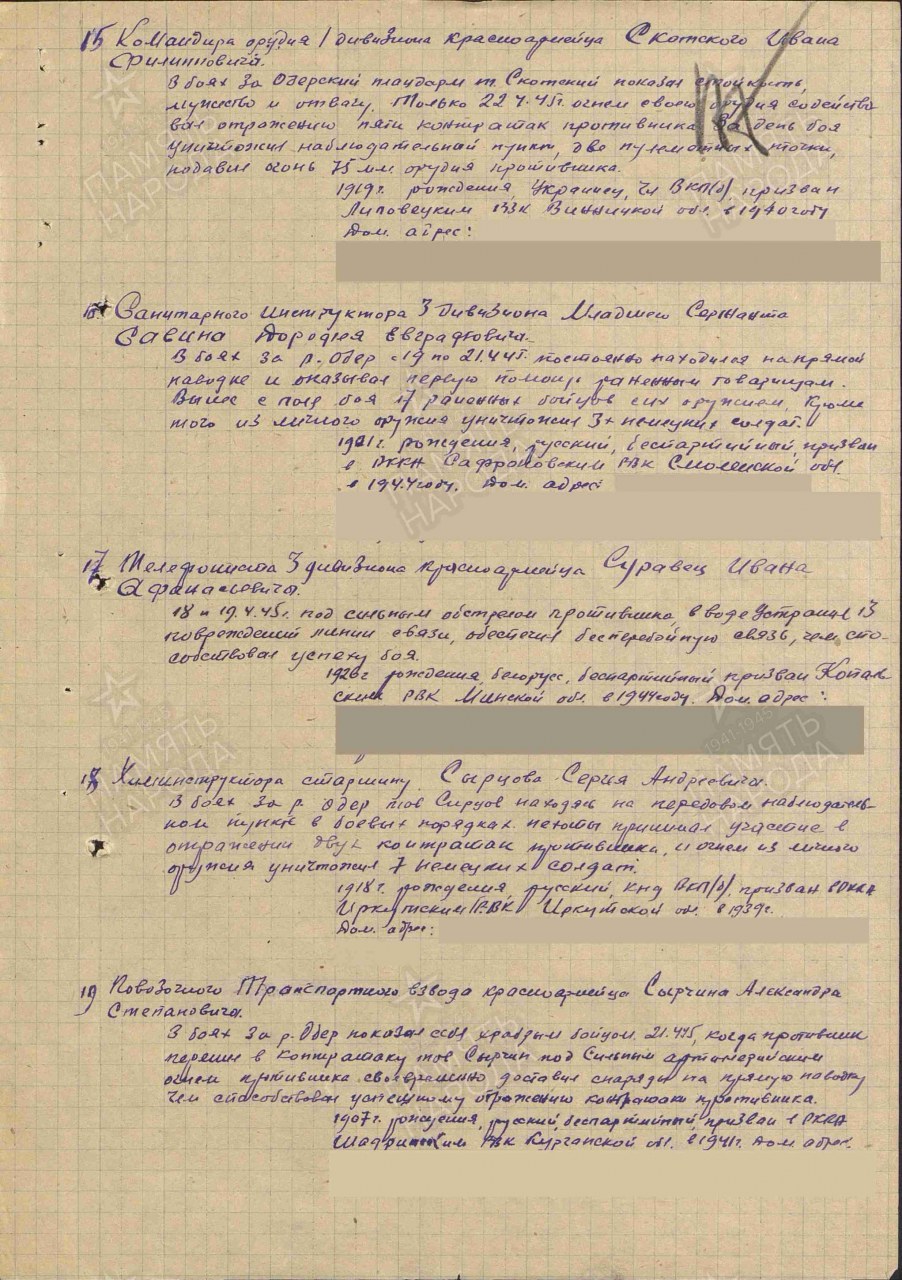 15 Командира орудия 1 дивизиона красноармейца Скотского Ивана
Филипповича.
В боях за Одерский плацдарм т. Скотский показал стойкость,
мужество и отвагу. Только 22.4.45г. огнем своего орудия содейство
вал отражению пяти контратак противника. За день боя
уничтожил наблюдательный пункт, две пулеметных точки,
подавил огонь 75 мм орудия противника.
1919г. рождения, Украинец, чл ВКП(б), призван
Липовецким РВК Винницкой обл. в 1940 году
Дом. адрес:
16 Санитарного инструктора 3 дивизиона Младшего Сержанта
Савина Дорофея Евграфовича.
В боях за р. Одер с 19 по 21.4.45г. постоянно находился на прямой
наводке и оказывал первую помощь раненным товарищам.
Вынес с поля боя 17 раненных бойцов с их оружием, кроме
того из личного оружия уничтожил 3х немецких солдат.
1921г. рождения, русский, беспартийный, призван
в РККА Сафроновским РВК Смоленской обл.
в 1944 году. Дом. адрес:
17 Телефониста 3 дивизиона красноармейца Суравец Ивана
Афанасьевича.
18 и 19.4.45г. под сильным обстрелом противника, в воде устранил 13
повреждений линии связи, обеспечил бесперебойную связь, чем спо-
собствовал успеху боя.
1926г рождения, белорус, беспартийный призван Копыль
ским РВК Минской обл. в 1944 году. Дом. адрес:
18 Химинструктора старшину Сырцова Сергея Андреевича.
В боях за р. Одер тов Сырцов находясь на передовом наблюдатель-
ном пункте в боевых порядках пехоты принимал участие в
отражении двух контратак противника, и огнем из личного
оружия уничтожил 7 немецких солдат.
1918г. рождения, русский, кнд ВКП(б), призван в РККА
Иркутским РВК Иркутской обл. в 1939г.
Дом. адрес:
19 Повозочного Транспортного взвода красноармейца Сырчина Александра
Степановича.
В боях за р. Одер показал себя храбрым бойцом. 21.4.45, когда противник
перешел в контратаку тов Сырчин под сильным артиллерийским
огнем противника своевременно доставил снаряды на прямую наводку
чем способствовал успешному отражению контратаки противника.
1907г. рождения, русский, беспартийный, призван в РККА
Шадринским РВК Курганской обл. в 1941г. Дом. адрес:
ПАМЯТЬ
НАРОДА
1941-1945